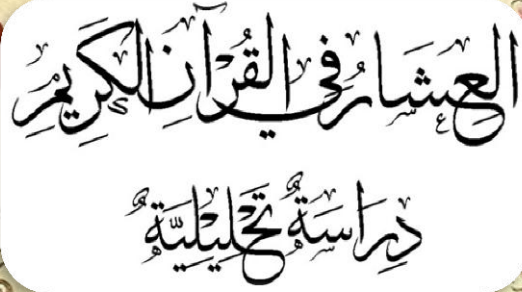 العِشَارُ في القُرْآنِ الكَرِيمِ
دِرَاسَةٌ تَحْلِيلِيَّةٌ